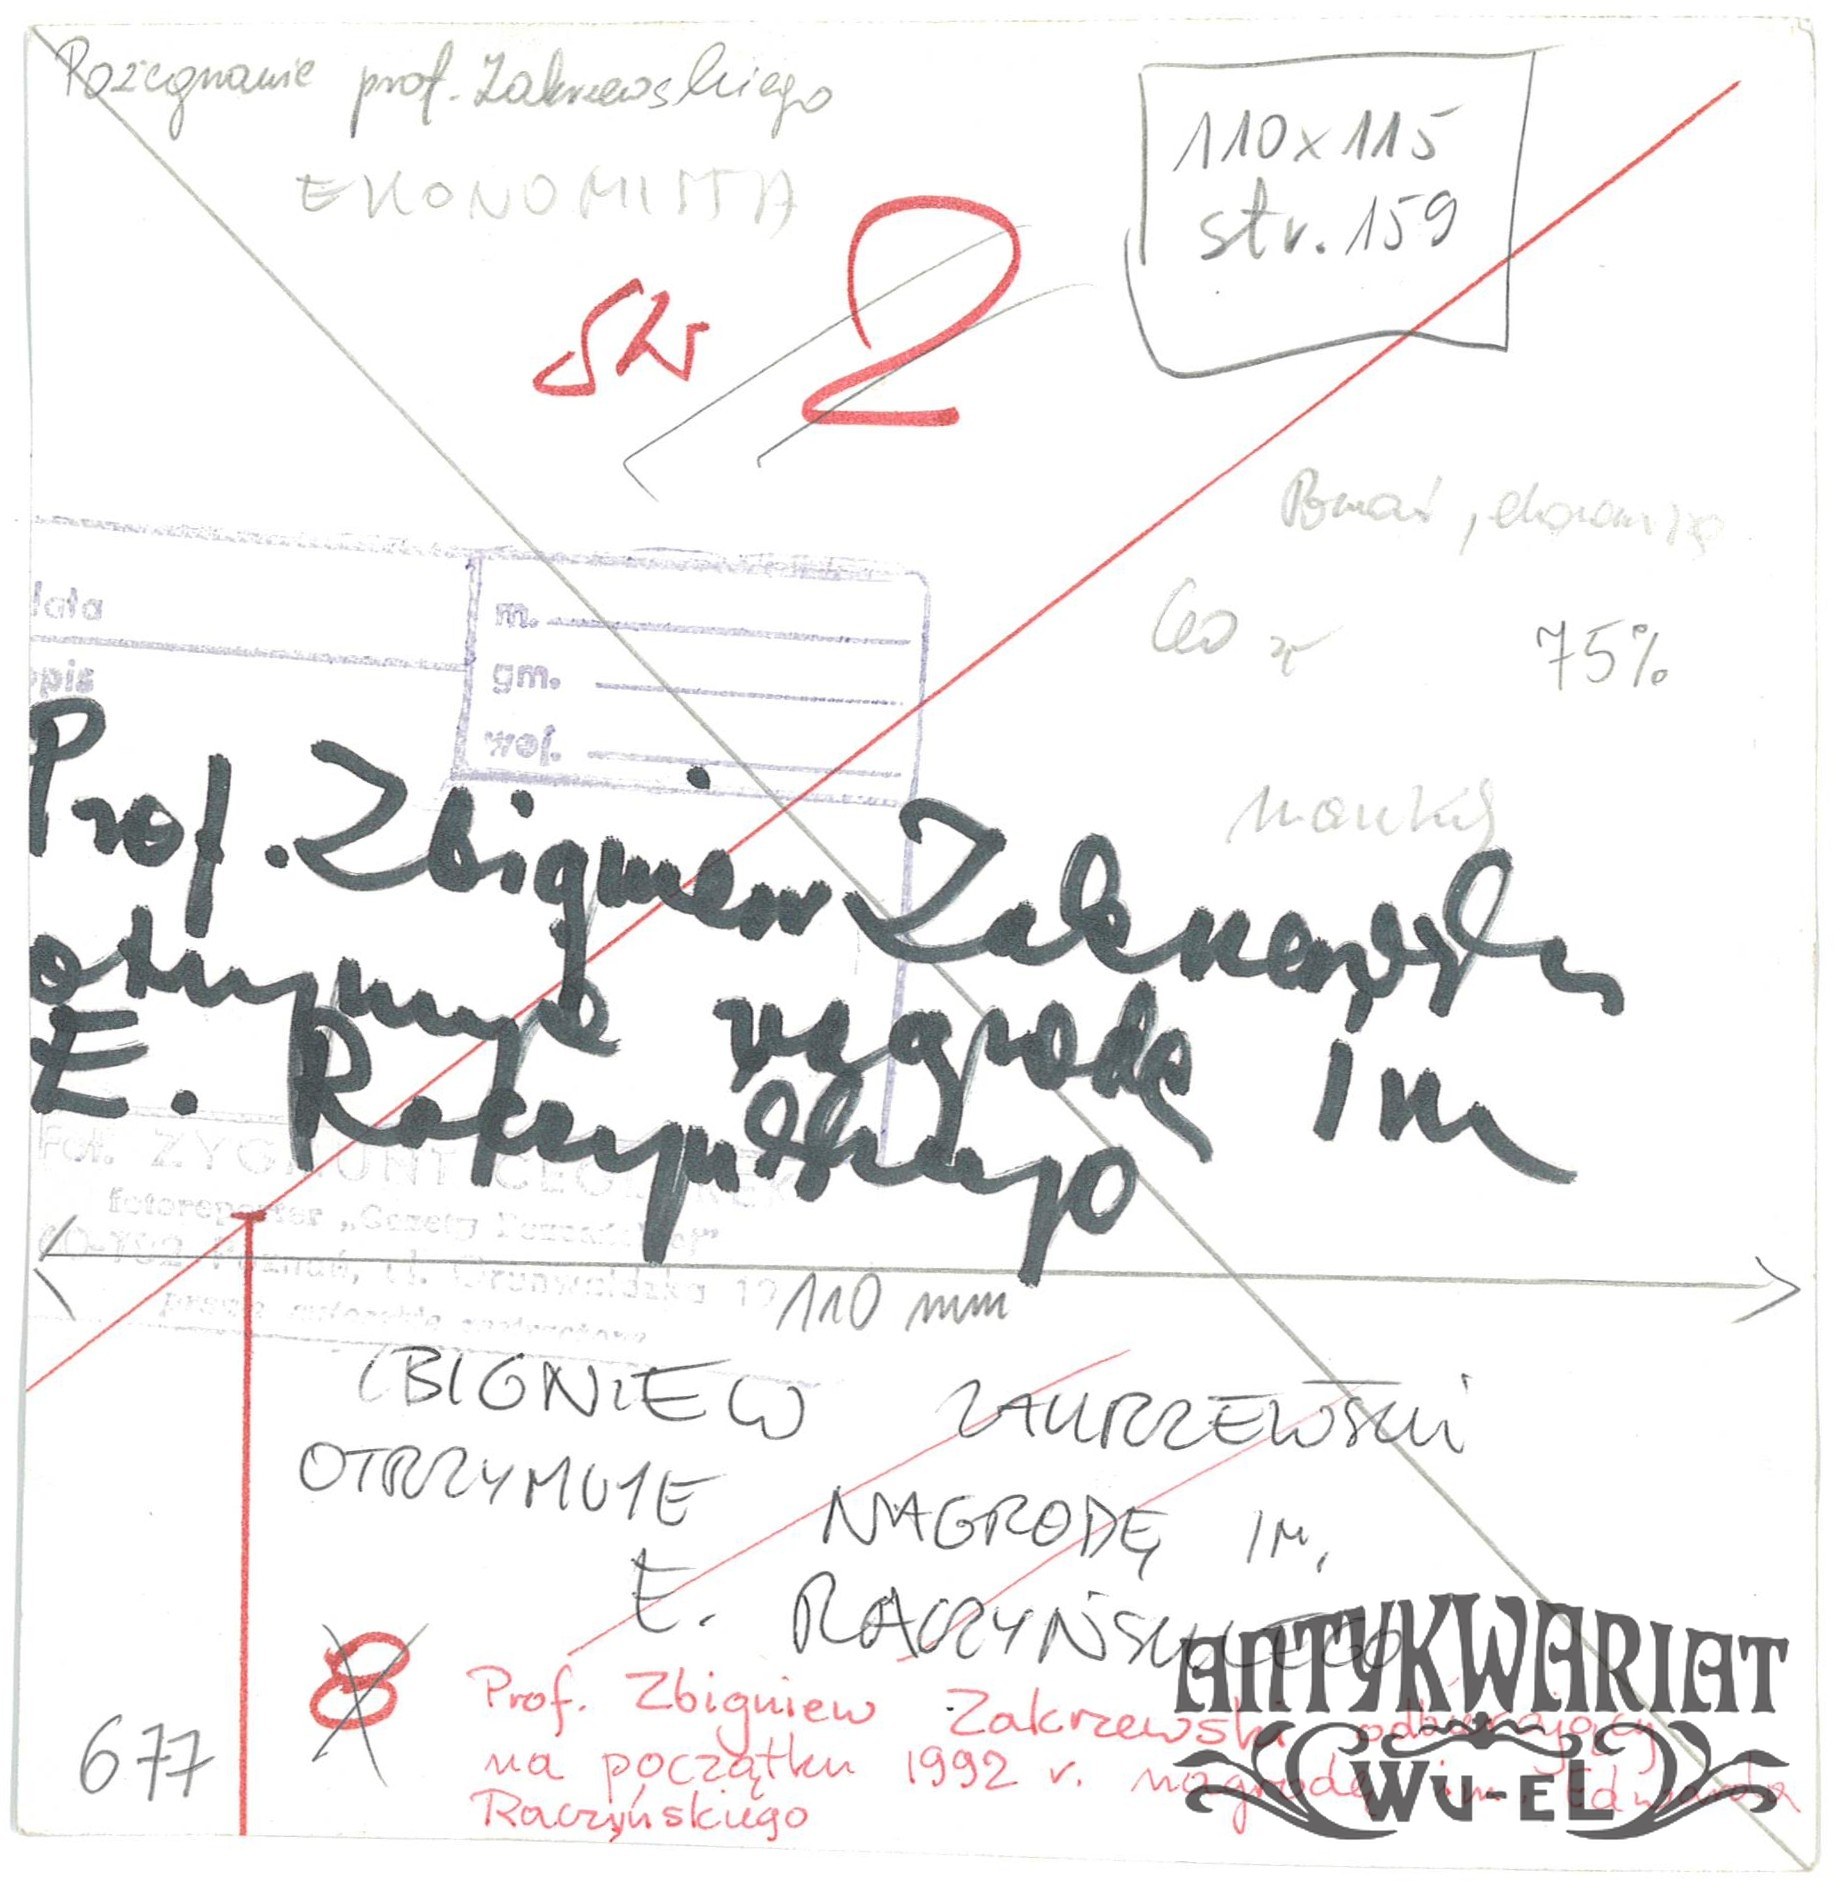 Pożegnanie prof. Zakrzewskiego
EKONOMISTA
110x115
str. 159
str 2
75%
data
opis
m.
gm.
woj.
nauka
Prof. Zbigniew Zakrzewski
otrzymuje nagrodę im
E. Raczyńskiego
Fot. ZYGMUNT
fotoreporter „Gazety Poznańskiej”
Poznań, ul. Grunwaldzka 19
prawa autorskie zastrzeżone
110 mm
ZBIGNIEW ZAKRZEWSKI
OTRZYMUJE NAGRODĘ IM.
E. RACZYŃSKIEGO
8
677
Prof. Zbigniew Zakrzewski odbierający
na początku 1992 r. nagrodę im. Edwarda
Raczyńskiego
ANTYKWARIAT
WU-EL